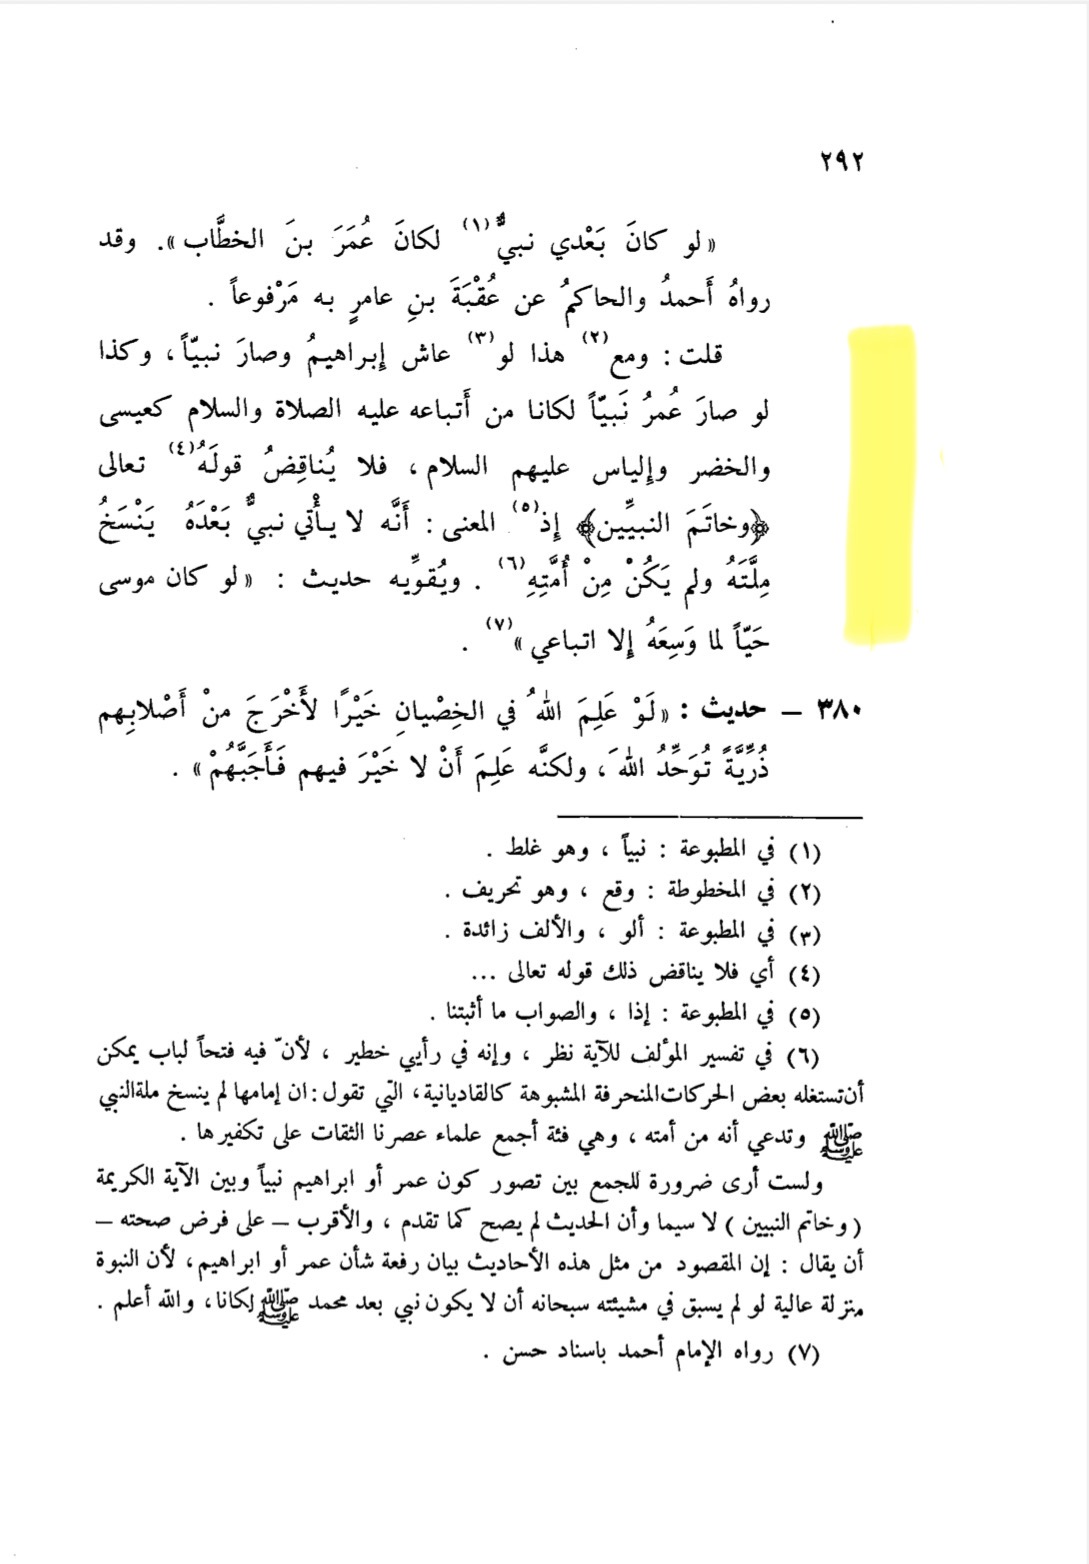 ٢٩٢
« لو كانَ بَعْدي نبيٌّ(١) لكانَ عُمَرَ بنَ الخطَّاب ». وقد
رواهُ أَحمدُ والحاكمُ عن عُقْبَةَ بنِ عامرٍ به مَرْفوعاً .
قلت : ومع(٢) هذا لو(٣) عاش إبراهيمُ وصارَ نبيّاً ، وكذا
لو صارَ عُمرُ نَبيّاً لكانا من أَتباعه عليه الصلاة والسلام كعيسى
والخضر وإلياس عليهم السلام ، فلا يُناقِضُ قولَهُ(٤) تعالى
﴿وخاتَمَ النبيِّين﴾ إذ(٥) المعنى : أَنَّه لا يأْتي نبيٌّ بَعْدَهُ يَنْسَخُ
مِلَّتَهُ ولم يَكُنْ مِنْ أُمَّتِهِ(٦) . ويُقوِّيه حديث : « لو كان موسى
حَيّاً لما وَسِعَهُ إلا اتباعي »(٧) .
٣٨٠ – حديث : « لَوْ عَلِمَ اللهُ في الخِصْيانِ خَيْرًا لأَخْرَجَ منْ أَصْلابِهم
ذُرِّيَّةً تُوَحِّدُ اللهَ ، ولكنَّه عَلِمَ أَنْ لا خَيْرَ فيهم فَأَجَبَّهُمْ » .
(١) في المطبوعة : نبياً ، وهو غلط .
(٢) في المخطوطة : وقع ، وهو تحريف .
(٣) في المطبوعة : ألو ، والألف زائدة .
(٤) أي فلا يناقض ذلك قوله تعالى ...
(٥) في المطبوعة : إذا ، والصواب ما أثبتنا .
(٦) في تفسير المؤلف للآية نظر ، وإنه في رأيي خطير ، لأنّ فيه فتحاً لباب يمكن
أن تستغله بعض الحركات المنحرفة المشبوهة كالقاديانية، التي تقول : ان إمامها لم ينسخ ملة النبي
ﷺ وتدعي أنه من أمته ، وهي فئة أجمع علماء عصرنا الثقات على تكفيرها .
ولست أرى ضرورة للجمع بين تصور كون عمر أو ابراهيم نبياً وبين الآية الكريمة
( وخاتم النبيين ) لا سيما وأن الحديث لم يصح كما تقدم ، والأقرب – على فرض صحته –
أن يقال : إن المقصود من مثل هذه الأحاديث بيان رفعة شأن عمر أو ابراهيم، لأن النبوة
منزلة عالية لو لم يسبق في مشيئته سبحانه أن لا يكون نبي بعد محمد ﷺ لكانا، والله أعلم .
(٧) رواه الإمام أحمد باسناد حسن .